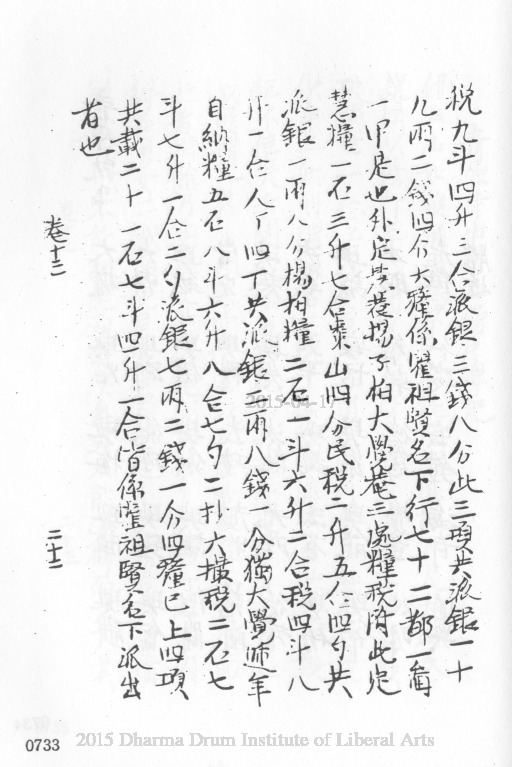 稅九斗四升三合派銀三錢八分此三項共派銀一十
九兩二錢四分大釐係瞿祖賢名下行七十二都一啚
一甲是也外定慧菴揚子柏大覺菴三處糧稅附此定
慧糧一石三升七合棗山四分民稅二升五合四勺共
派銀一兩八分揚柏糧二石一斗六升二合稅四斗八
升一合人丁四丁共派銀二兩八錢一分獨大覺遞年
自納糧五石八斗六升八合七勺二抄六撮稅二石七
斗七升一合二勺派銀七兩二錢一分四釐已上四項
共載二十一石七斗四升一合皆係瞿祖賢名下派出
者也
卷十三
二十二
0733
2015-04-17
2015 Dharma Drum Institute of Liberal Arts